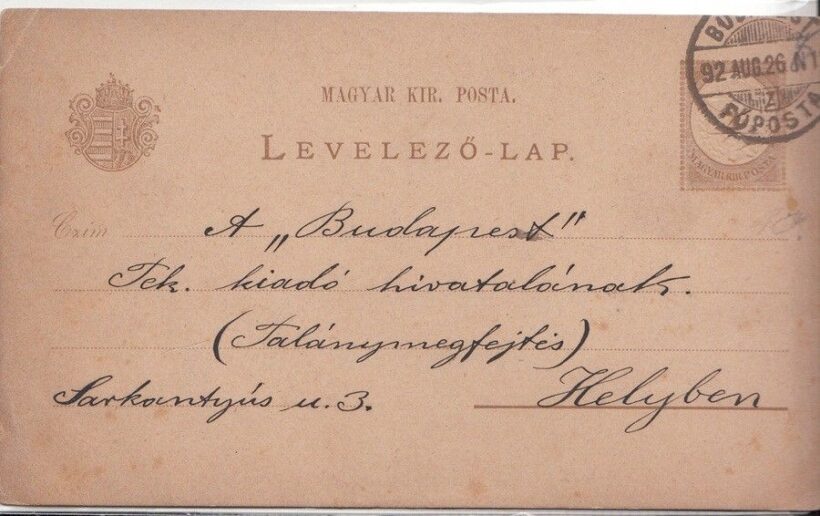 MAGYAR KIR. POSTA.
LEVELEZŐ-LAP.
92 AUG. 26 N1
Z
FŐPOSTA
MAGYAR KIR. POSTA
Czím
A „Budapest"
Tek. kiadó hivatalának.
(Talánymegfejtés)
Sarkantyús u. 3.
Helyben